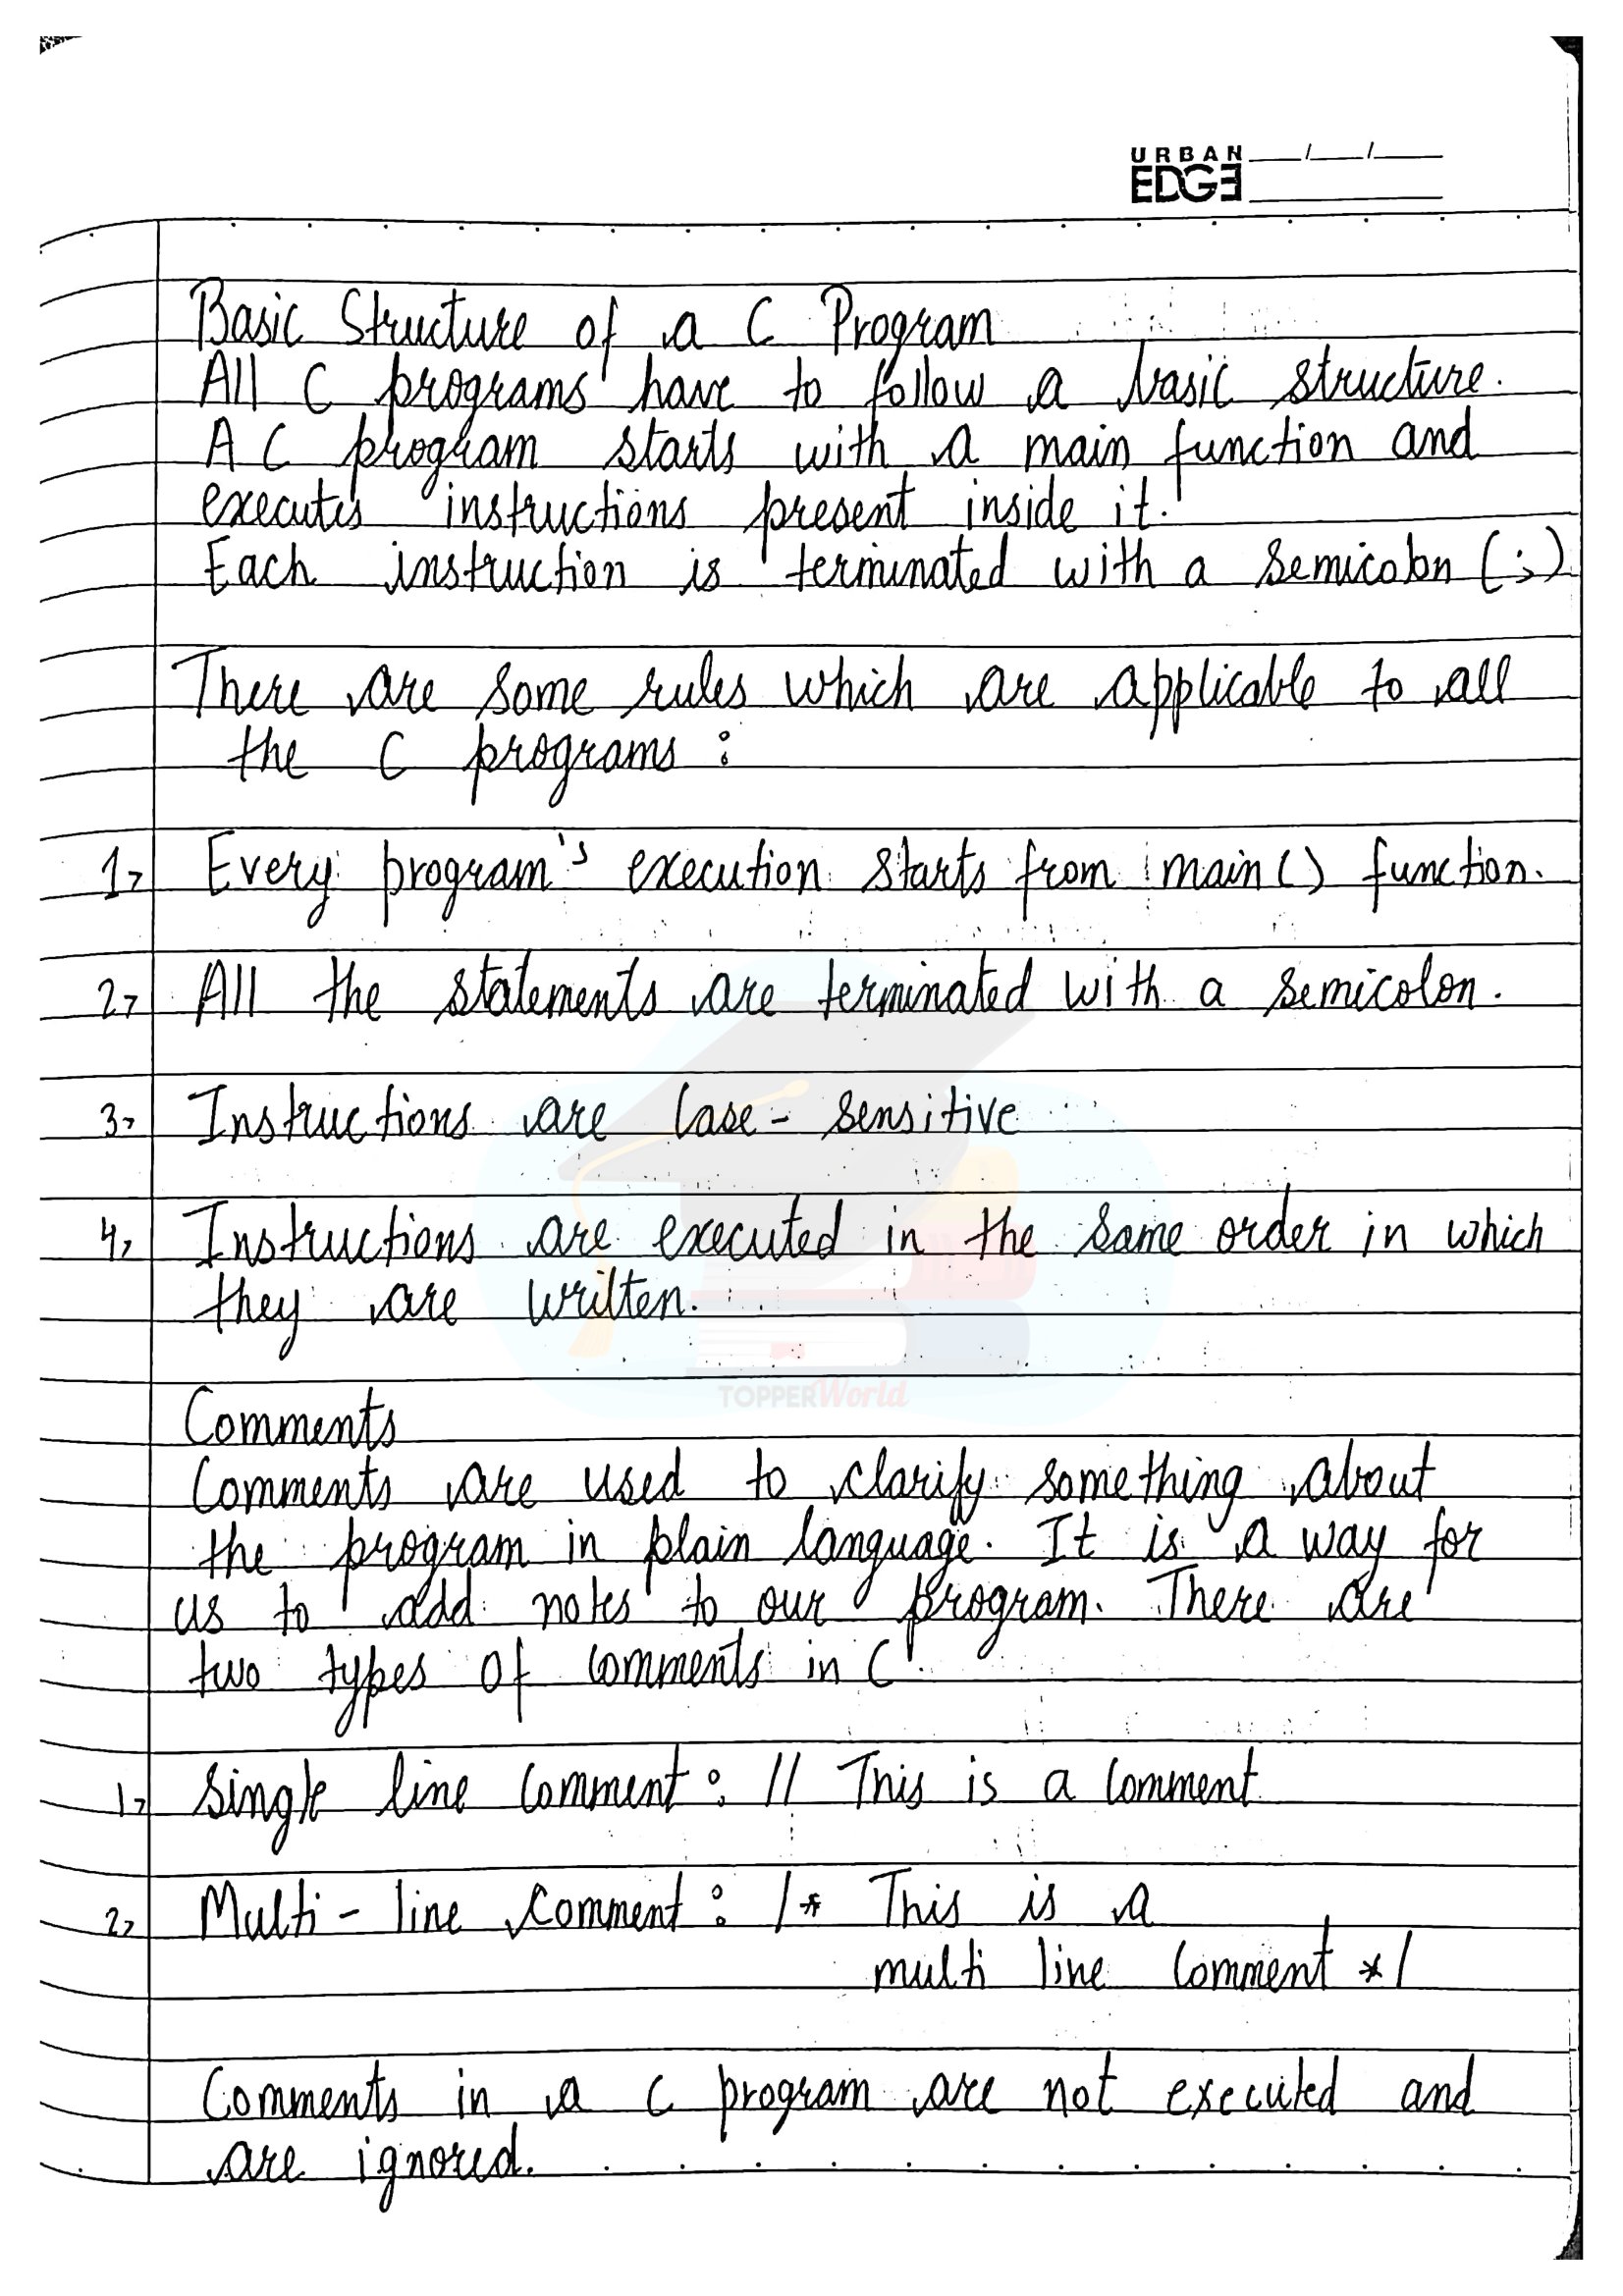 URBAN
EDGE
Basic Structure of a C Program
All C programs have to follow a basic structure.
A C program starts with a main function and
executes instructions present inside it.
Each instruction is terminated with a semicolon (;)
There are some rules which are applicable to all
the C programs :
1> Every program's execution starts from main() function.
2> All the statements are terminated with a semicolon.
3> Instructions are case-sensitive
4> Instructions are executed in the same order in which
they are written.
TOPPERWorld
Comments
Comments are used to clarify something about
the program in plain language. It is a way for
us to add notes to our program. There are
two types of comments in C.
1> Single line comment : // This is a comment
2> Multi-line comment : /* This is a
multi line comment */
Comments in a C program are not executed and
are ignored.